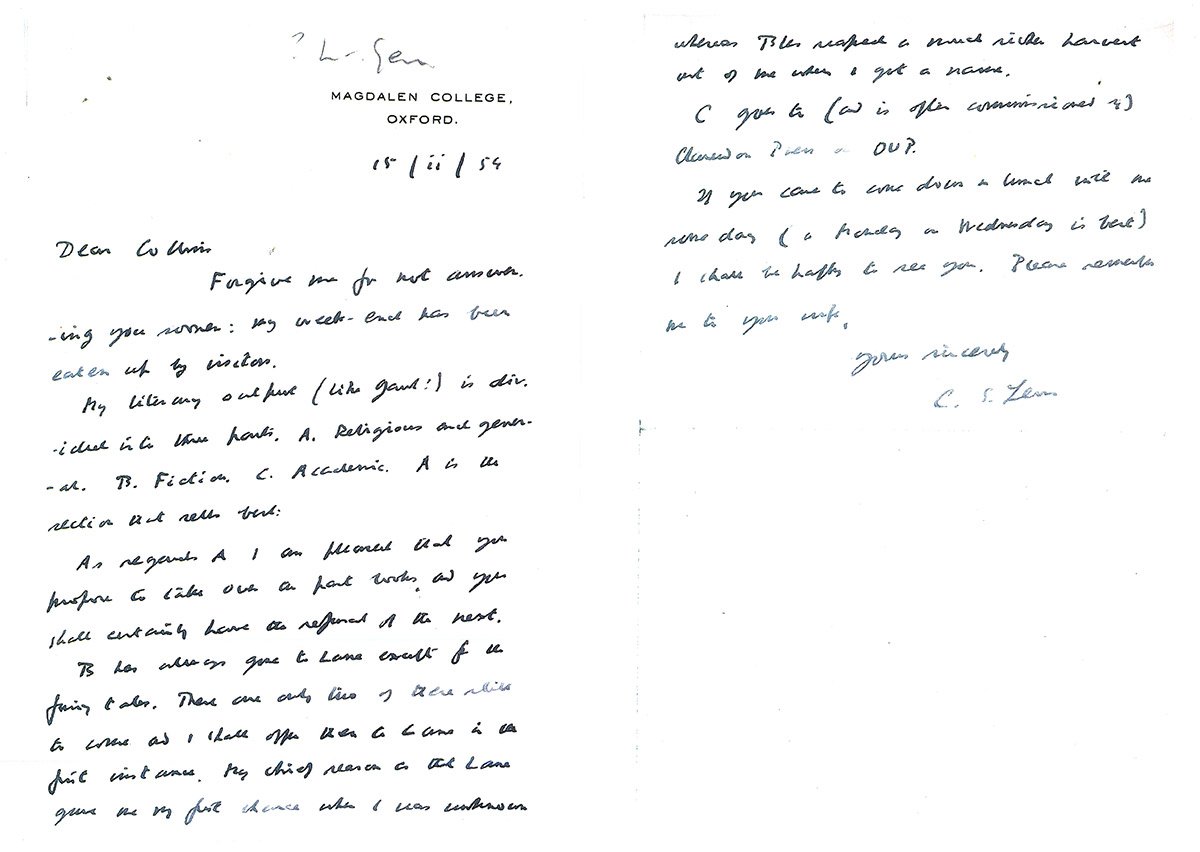 MAGDALEN COLLEGE,
OXFORD.
15/ii/54
Dear Collins
Forgive me for not answer-
-ing you sooner: my week-end has been
eaten up by visitors.
My literary output (like Gaul!) is div-
-ided into three parts. A. Religious and gener-
-al. B. Fiction. C. Academic. A is the
section that sells best.
As regards A I am pleased that you
propose to take over the past books, and you
shall certainly have the refusal of the next.
B has always gone to Lane except for the
fairy tales. There are only two of these still
to come and I shall offer them to Lane in the
first instance. My chief reason is that Lane
gave me my first chance when I was unknown
whereas Bles reaped a much richer harvest
out of me when I got a name.
C goes to (and is often commissioned by)
Clarendon Press or OUP.
If you care to come down & lunch with me
some day (a Monday or Wednesday is best)
I shall be happy to see you. Please remember
me to your wife.
Yours sincerely
C. S. Lewis